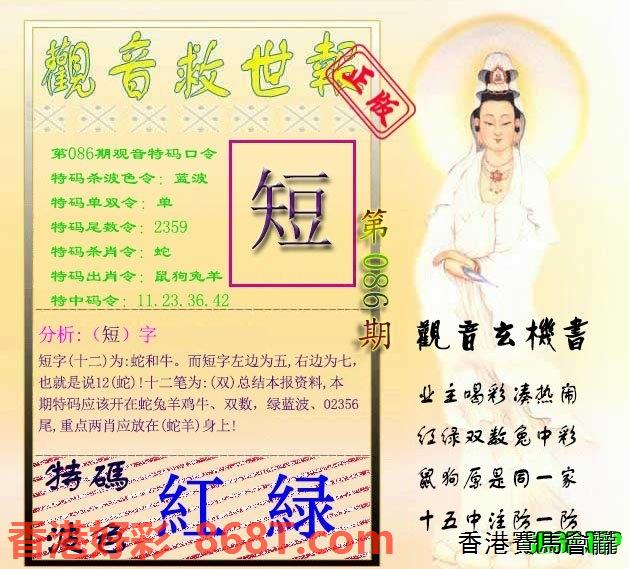 觀音救世報
正版
第086期观音特码口令
特码杀波色令：蓝波
特码单双令：单
特码尾数令：2359
特码杀肖令：蛇
特码出肖令：鼠狗兔羊
特中码令：11.23.36.42
短
第086期
分析:（短）字
短字(十二)为:蛇和牛。而短字左边为五,右边为七,
也就是说12(蛇)!十二笔为:(双)总结本报资料,本
期特码应该开在蛇兔羊鸡牛、双数，绿蓝波、02356
尾,重点两肖应放在(蛇羊)身上!
特碼
波色
紅 绿
香港好彩-868T.com
觀音玄機書
业主喝彩凑热闹
红绿双数兔中彩
鼠狗原是同一家
十五中注防一防
香港賽馬會